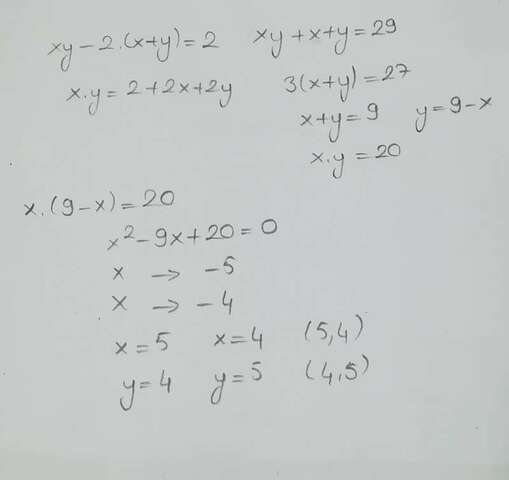 xy - 2.(x+y) = 2    xy + x + y = 29
x.y = 2 + 2x + 2y    3(x+y) = 27
x + y = 9    y = 9 - x
x.y = 20
x.(9-x) = 20
x² - 9x + 20 = 0
x → -5
x → -4
x = 5    x = 4    (5,4)
y = 4    y = 5    (4,5)